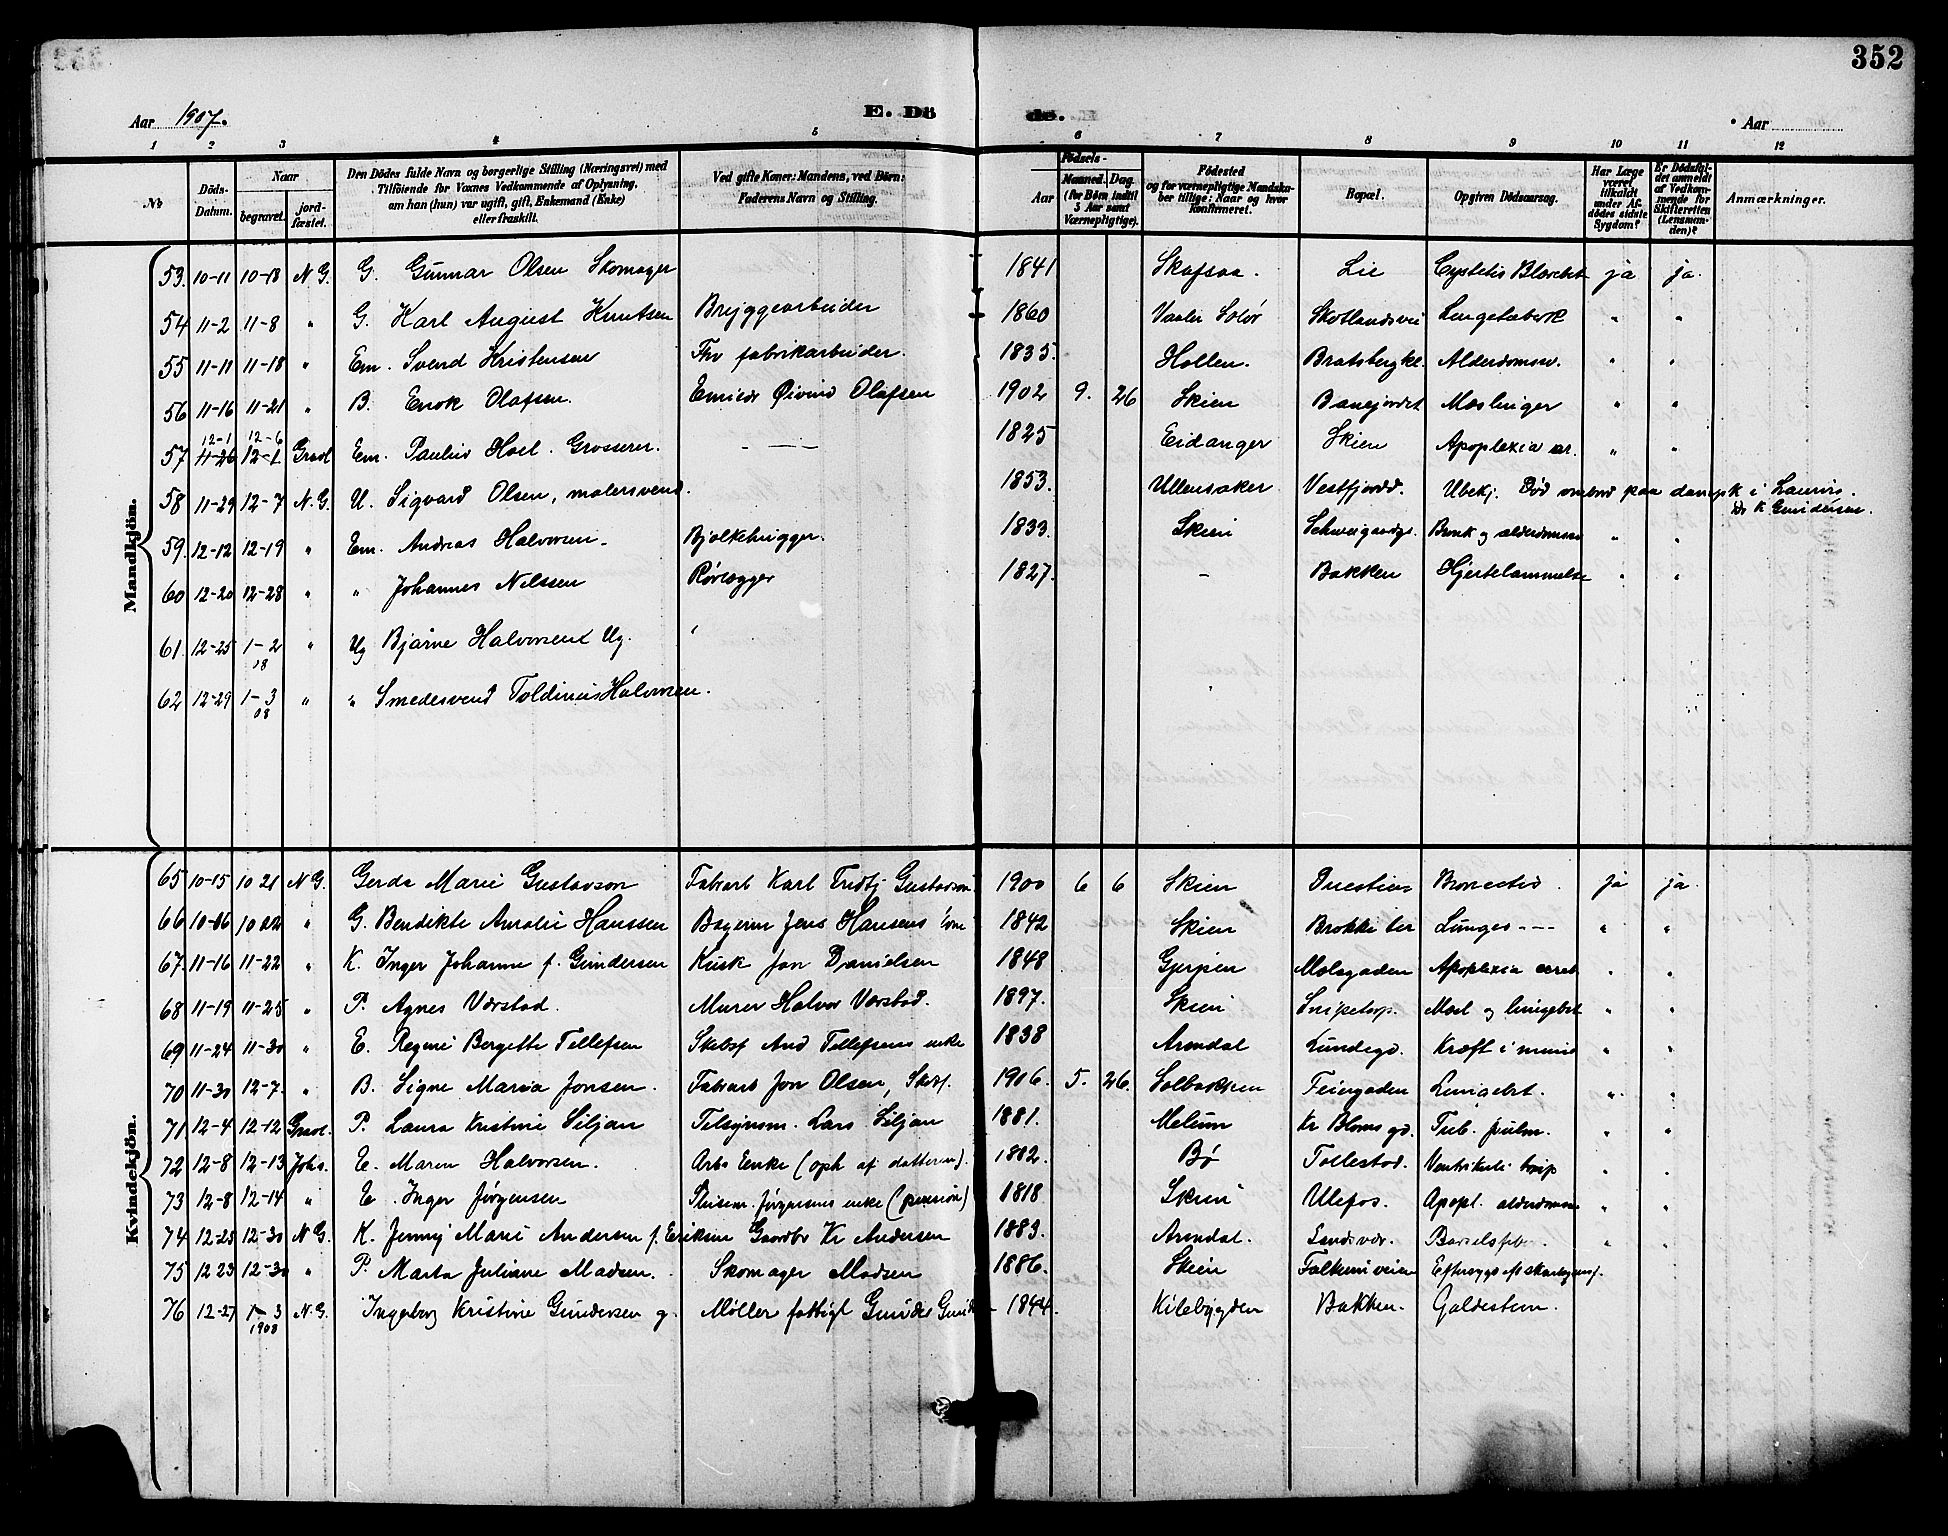 352
Aar 1907. E. Dö de. Aar
1 2 3 4 5 6 7 8 9 10 11 12
No Döds-Datum. Naar begravet. jord-fæstet. Den Dödes fulde Navn og borgerlige Stilling (Næringsvei) med Tilföiende for Voxnes Vedkommende af Oplysning, om han (hun) var ugift, gift, Enkemand (Enke) eller fraskilt. Ved gifte Koner: Mandens, ved Börn: Faderens Navn og Stilling. Födsels- Aar Maaned. Dag. (for Börn indtil 5 Aar samt Værnepligtige). Födested og for værnepligtige Mandska-ber tillige: Naar og hvor Konfirmeret. Bopæl. Opgiven Dödsaarsag. Har Læge været tilkaldt under Af-dödes sidste Sygdom? Er Dödsfal-det anmeldt af Vedkom-mende for Skifteretten (Lensman-den)? Anmærkninger.
Mandkjön.
53. 10-11 10-18 N.G. G. Gunnar Olsen Skomager 1841 Skafsaa. Lie Cystitis ja ja.
54 11-2 11-8 " G. Karl August Knutsen Bryggearbeider 1860 Vaaler Solør Skotlandsvei " "
55 11-11 11-18 " Em. Svend Kristensen Fhv fabrikarbeider. 1835. Hollen. Bratsbergkl. Alderdomssv. " "
56 11-16 11-21 " B. Enok Olafsen. Øivind Olafsen 1902 9. 26 Skien Banejordet Mæslinger " "
12-1 12-6
57 11-26 12-1 Gravl Em. Paulus Hoel. Grosserer. — — 1825 Eidanger Skien Apoplexia " "
58 11-29 12-7 N.G. U. Sigvard Olsen, malersvend. 1853. Ullensaker Vestfjordd. Ubekj. Død ombord paa dampsk i
K Gundersen.
59. 12-12 12-19 " Em. Andreas Halvorsen. Bjelkehugger. 1833. Skien Schweigaardsg. Bronk og alderdomssv " "
60 12-20 12-28 " " Johannes Nilssen Rørlægger 1827. - Bakken Hjertelammelse " "
61. 12-25 1-2 " Ug Bjarne Halvorsen Ug.
08
62 12-29 1-3 " " Smedesvend Toldinius Halvorsen.
08
Kvindekjön.
65 10-15 10 21 N G. Gerda Marie Gustavson Fabrarb Karl Gustavson 1900 6 6 Skien ja ja.
66 10-16 10 22 " G. Bendikte Amalie Hanssen Jens Hansens 1842 Skien Lunges --- " "
67. 11-16 11-22 " K. Inger Johanne f. Gundersen Kusk Jon Danielsen 1848 Gjerpen Molsgaden Apoplexia cereb " "
68 11-19 11-25 " P. Agnes Værstad. Murer Halvor Værstad. 1897. Skien Snipetorp. Mæsl og lungebet " "
69 11-24 11-30 " E. Regine Bergitte Tellefsen Skibsf And Tellefsens enke 1838 Arendal Lundegd. Kræft i " "
70 11-30 12-7. " B. Signe Maria Jonsen. Fabrarb Jon Olsen, 1906. 5. 26. Solbakken Feiergaden Lungebet. " "
71. 12-4 12-12 Gravl. P. Laura Kristine Siljan Tilsynsm. Lars Siljan 1881. Melum Kr Bloms gd. Tub. pulm. " "
72 12-8 12-13 Johs. E. Maren Halvorsen. Arbs Enke (oph af datteren). 1812. Bø Tollestad. " "
73 12-8 12-14 " E Inger Jørgensen Jørgensens enke (pension) 1818 Skien Ulefos. Apopl. alderdomssv " "
74 12-23 12-30 N G. K. Jenny Marie Andersen f. Eriksen Gaardbr Kr Andersen 1883. Arendal. Sandsvær. Barselsfeber. " "
75 12 23 12-30 " P. Marta Juliane Madsen. Skomager Madsen 1886. Skien Falkumveien "
76 12-27 1-3 N.G. Ingeborg Kristine Gundersen g. Møller fattigl 1844. Kilebygden Bakken. Galdesten.
1908